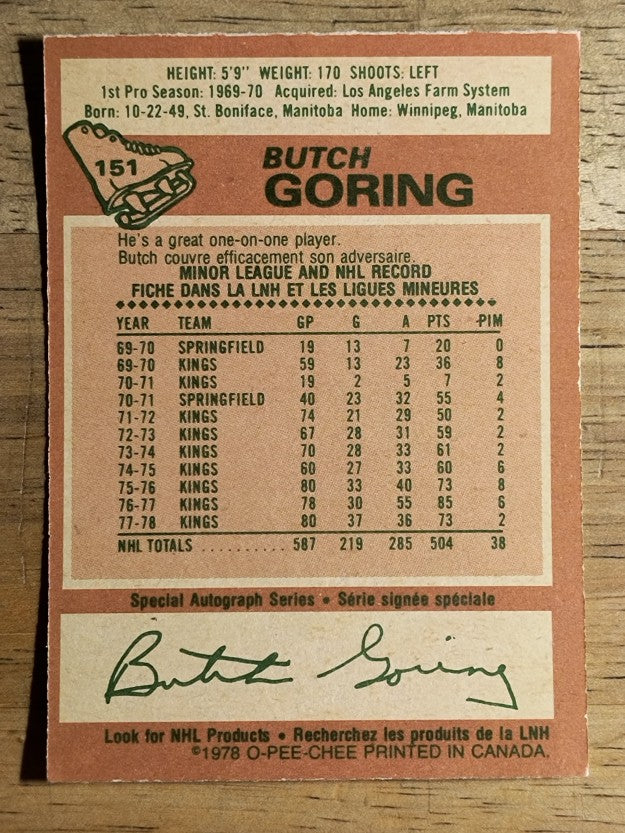 HEIGHT: 5'9" WEIGHT: 170 SHOOTS: LEFT
1st Pro Season: 1969-70 Acquired: Los Angeles Farm System
Born: 10-22-49, St. Boniface, Manitoba Home: Winnipeg, Manitoba
151
BUTCH
GORING
He's a great one-on-one player.
Butch couvre efficacement son adversaire.
MINOR LEAGUE AND NHL RECORD
FICHE DANS LA LNH ET LES LIGUES MINEURES
YEAR TEAM GP G A PTS PIM
69-70 SPRINGFIELD 19 13 7 20 0
69-70 KINGS 59 13 23 36 8
70-71 KINGS 19 2 5 7 2
70-71 SPRINGFIELD 40 23 32 55 4
71-72 KINGS 74 21 29 50 2
72-73 KINGS 67 28 31 59 2
73-74 KINGS 70 28 33 61 2
74-75 KINGS 60 27 33 60 6
75-76 KINGS 80 33 40 73 8
76-77 KINGS 78 30 55 85 6
77-78 KINGS 80 37 36 73 2
NHL TOTALS .......... 587 219 285 504 38
Special Autograph Series • Série signée spéciale
Butch Goring
Look for NHL Products • Recherchez les produits de la LNH
©1978 O-PEE-CHEE PRINTED IN CANADA.